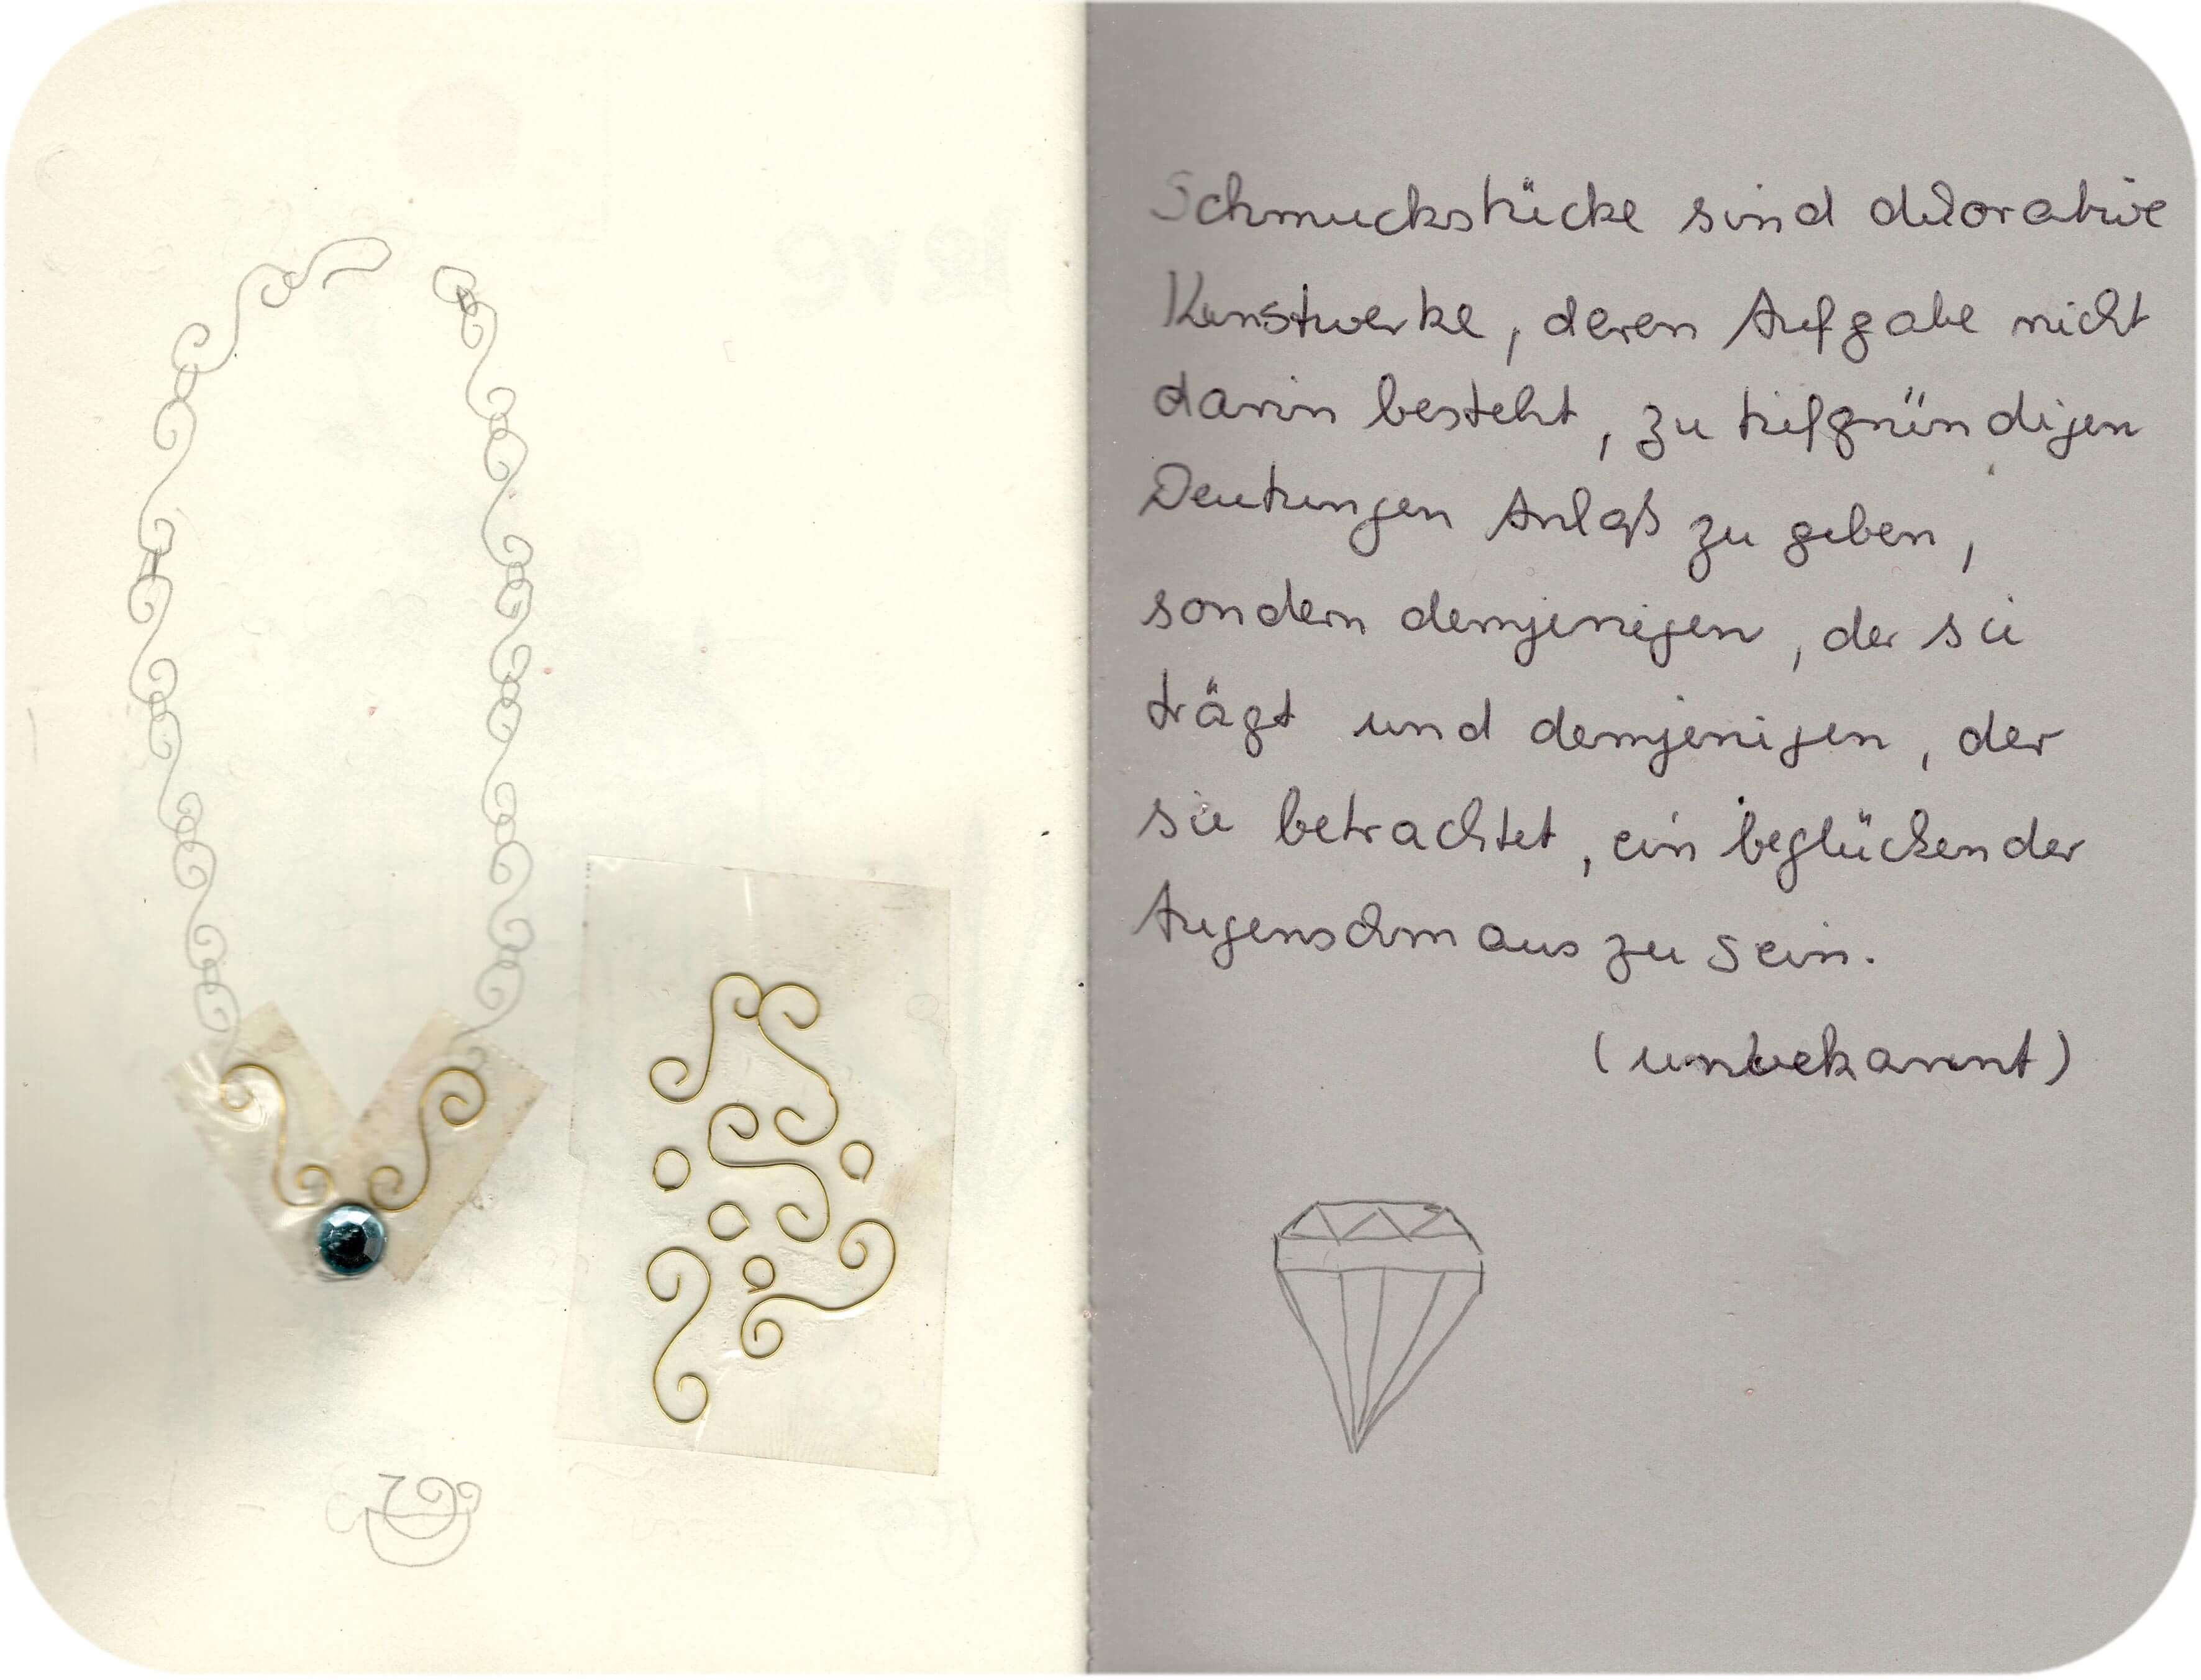 Schmuckstücke sind dekorative
Kunstwerke, deren Aufgabe nicht
darin besteht, zu tiefgründigen
Deutungen Anlaß zu geben,
sondern demjenigen, der sie
trägt und demjenigen, der
sie betrachtet, ein beglückender
Augenschmaus zu sein.
(unbekannt)